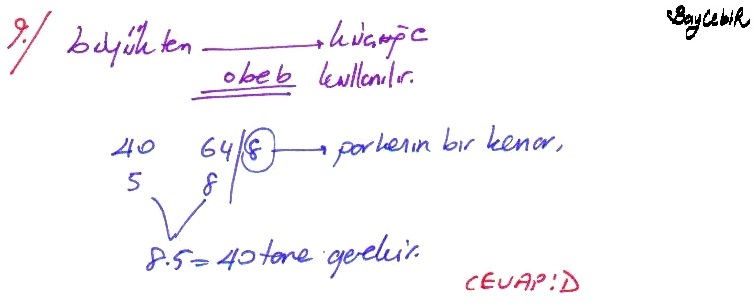 BayCebiR
9./ büyükten → küçüğe
obeb kullanılır.
40 64 / 8 → parkenin bir kenarı
5 8
8.5 = 40 tane gerekir.
CEVAP: D